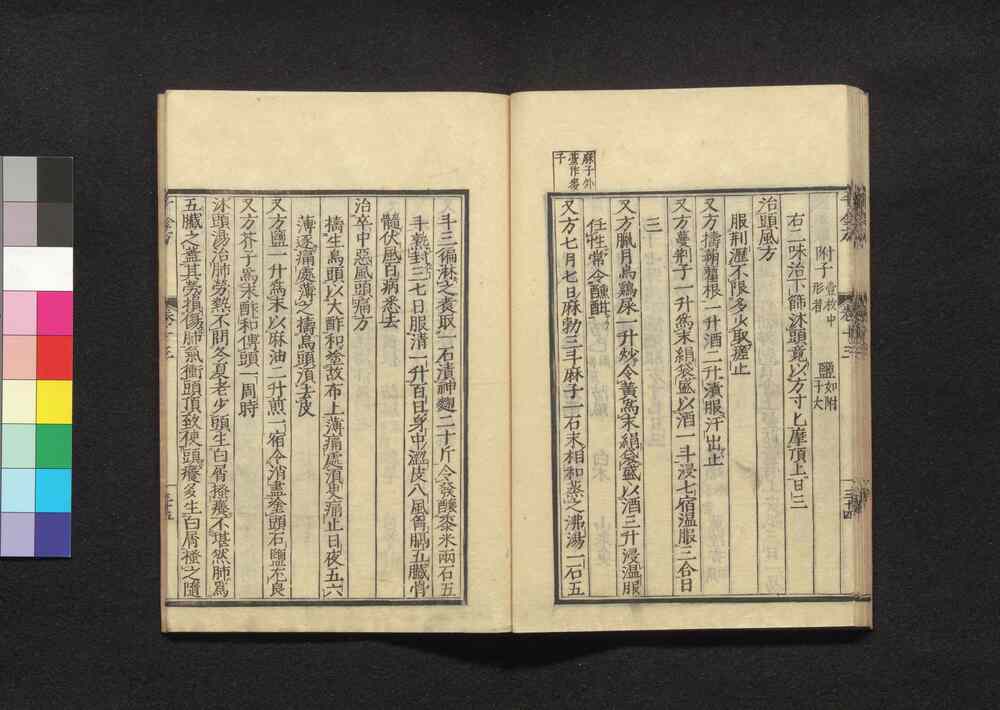 麻子外
臺作麥
子
附子壹枚中形者　鹽如附子大
右二味治下篩沐頭竟以方寸匕摩頂上日三
治頭風方
服荆瀝不限多少取瘥止
又方擣蒴藋根一升酒二升漬服汗出止
又方蔓荆子一升爲末絹袋盛以酒一斗浸七宿温服三合日
三
又方臘月烏雞屎一升炒令黄爲末絹袋盛以酒三升浸温服
任性常令醺酣
又方七月七日麻勃三斗麻子一石末相和蒸之沸湯一石五
三十四
斗三徧淋之煮取一石漬神麴二十斤令發釀黍米兩石五
斗熟封三七日服清一升百日身中澀皮八風胷膈五臟骨
髓伏風百病悉去
治卒中惡風頭痛方
擣生烏頭以大酢和塗故布上薄痛處須臾痛止日夜五六
薄逐痛處薄之擣烏頭須去皮
又方鹽一升爲末以麻油二升煎一宿令消盡塗頭石鹽尤良
又方芥子爲末酢和傅頭一周時
沐頭湯治肺勞熱不問冬夏老少頭生白屑搔癢不堪然肺爲
五臟之蓋其勞損傷肺氣衝頭頂致使頭癢多生白屑搔之隨
千金方
三十五